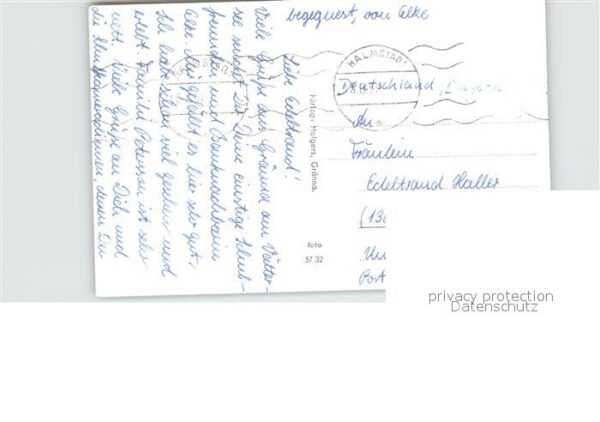 Liebe Edeltraud!
Viele Grüße aus Gränna am Vätter-
see sendet Dir Deine einstige Schul-
freundin und Banknachbarin
Elke. Mir gefällt es hier sehr gut.
Ich habe schon viel gesehen und
erlebt. Familie Petersson ist sehr
nett. Liebe Grüße an Dich und
die Klassenkameradinnen, denen Du
begegnest, von Elke
Förlag: Holgers, Gränna.
foto
57.32
HALMSTAD
HALMSTAD
Deutschland,
An
Fräulein
Edeltraud Haller
(13
Un
Post
privacy protection
Datenschutz